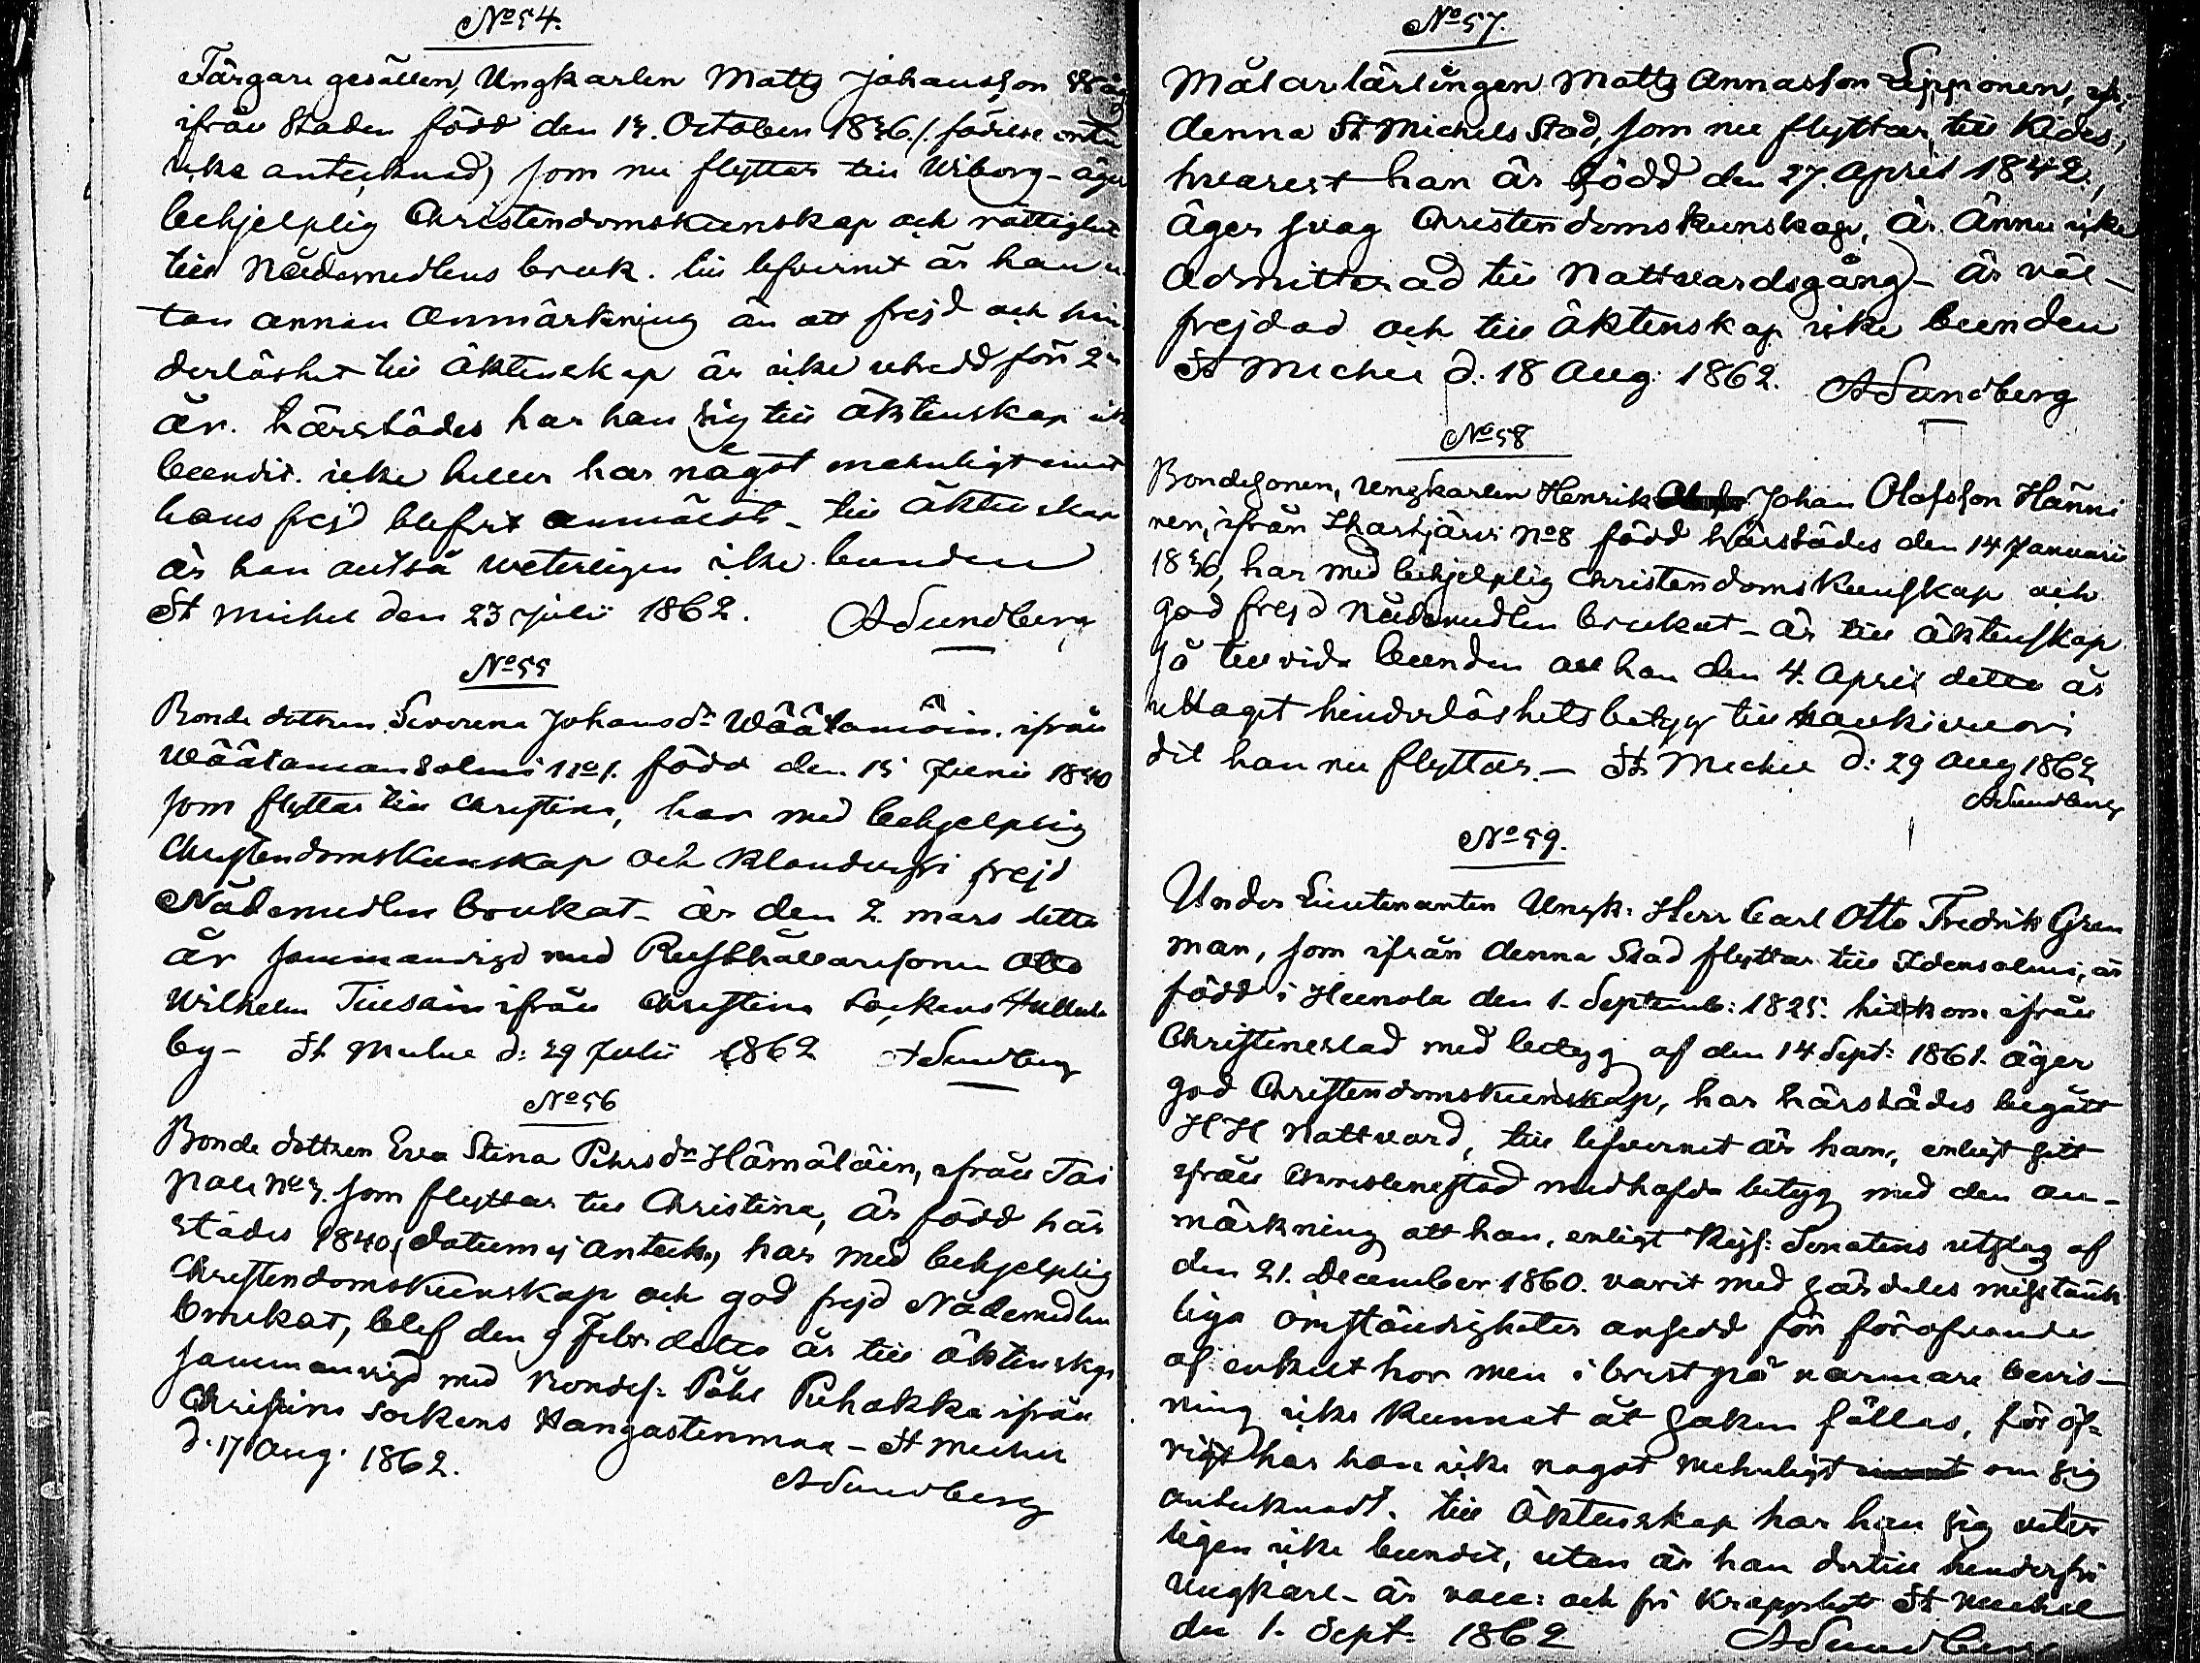 No 54.
Färgare gesällen, Ungkarlen Matts Johansson
ifrån Staden född den 15. October 1836./. födelse orten
icke antecknad, som nu flyttar till Wiborg - äger
behjelplig Christendomskunskap och rättighet
till Nådemedlens bruk. till lefvernet är han u
tan annan anmärkning än att frejd och hin
derlöshet till äktenskap är icke utredd för 2ne
år. härstädes har han sig till äktenskap ick
bundit. icke heller har något menligt emot
hans frejd blifvit anmäldt - till äktenskap
är han altså veterligen icke bunden
St Michel den 23 Julii 1862. ASundberg
No 55
Bonde dottren Severina Johansdr Wäätämöin. ifrån
Wäätämänsalmi No 1. född den 15 Junii 1840
som flyttar till Christina, har med behjelplig
Christendomskunskap och klanderfri frejd
Nådemedlen brukat - är den 2. mars detta
år sammanvigd med Rusthållaresonen Otto
Wilhelm Tiusain ifrån Christina Sockens
by - St Michel d: 29 Julii 1862 ASundberg
No 56
Bonde dottren Eva Stina Pehrsdr Hämäläin, ifrån Tai
pale No 5. som flyttar till Christina, är född här
städes 1840, (datum ej anteckn,) har med behjelplig
Christendomskunskap och god frejd Nådemedlen
brukat, blef den 9 Febr detta år till äktenskap
sammanvigd med Bondes: Påhl Puhakka ifrån
Christina Sockens Hangastenmaa - St Michel
d. 17 Aug. 1862.
ASundberg
No 57.
Målarlärlingen Matts Annasson Lipponen, ifr:
denna St Michels Stad, som nu flyttar till Kides,
hvarest han är född den 27. April 1842,
äger svag Christendomskunskap, är ännu icke
admitterad till Nattvardsgång - är väl -
frejdad och till äktenskap icke bunden
St Michel d: 18 Aug: 1862. ASundberg
No 58
Bondesonen, ungkarlen Henrik Johan Olofsson Hänni
nen, ifrån Ihastjärvi No 8 född härstädes den 14 Januarii
1836, har med behjelplig Christendomskunskap och
god frejd Nådemedlen brukat - är till äktenskap
så tillvida bunden att han den 4. April detta år
uttagit hinderlöshetsbetyg till Haukivuori
dit han nu flyttar. - St Michel d: 29 Aug 1862
ASundberg
No 59.
Under Lieutenanten Ungk: Herr Carl Otto Fredrik Gren
man, som ifrån denna Stad flyttar till Idensalmi, är
född i Heinola den 1. Septemb: 1825. hitkom ifrån
Christinestad med betyg af den 14 Sept: 1861. äger
god Christendomskunskap, har härstädes begått
HH Nattvard, till lefvernet är han, enligt sitt
ifrån Christinestad medhafda betyg med den an -
märkning att han, enligt Kejs: Senatens utslag af
den 21. December 1860. varit med särdeles misstänk
liga omständigheter ansedd för föröfvande
af enkelt hor men i brist på närmare bevis -
ning icke kunnat åt saken fällas, för öf-
rigt har han icke något menligt om sig
antecknadt. till äktenskap har han sig veter
ligen icke bundit, utan är han dertill hinderfri
Ungkarl - är vacc: och fri Kroppslyte St Michel
den 1. Sept. 1862 ASundberg